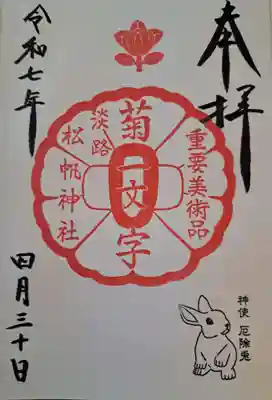 奉拝
重要美術品
菊一文字
淡路
松帆神社
令和七年
四月三十日
神使 厄除兎